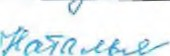 Наталья